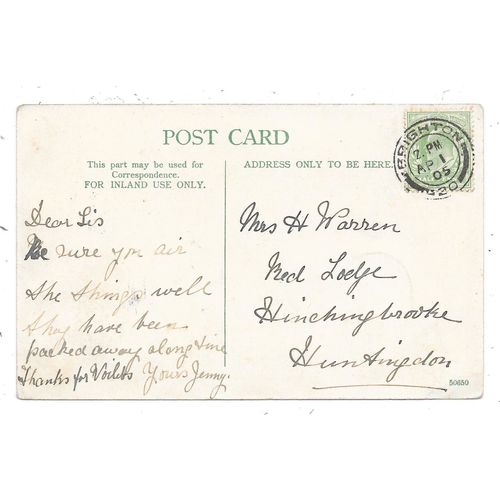 POST CARD
This part may be used for
Correspondence.
FOR INLAND USE ONLY.
ADDRESS ONLY TO BE HERE.
BRIGHTON
2. PM
AP 1
05
Dear Sis
Be sure you air
the things well
they have been
packed away along time
Thanks for Voilets Yours Jenny.
Mrs H Warren
Red Lodge
Hinchingbrooke
Huntingdon
50650